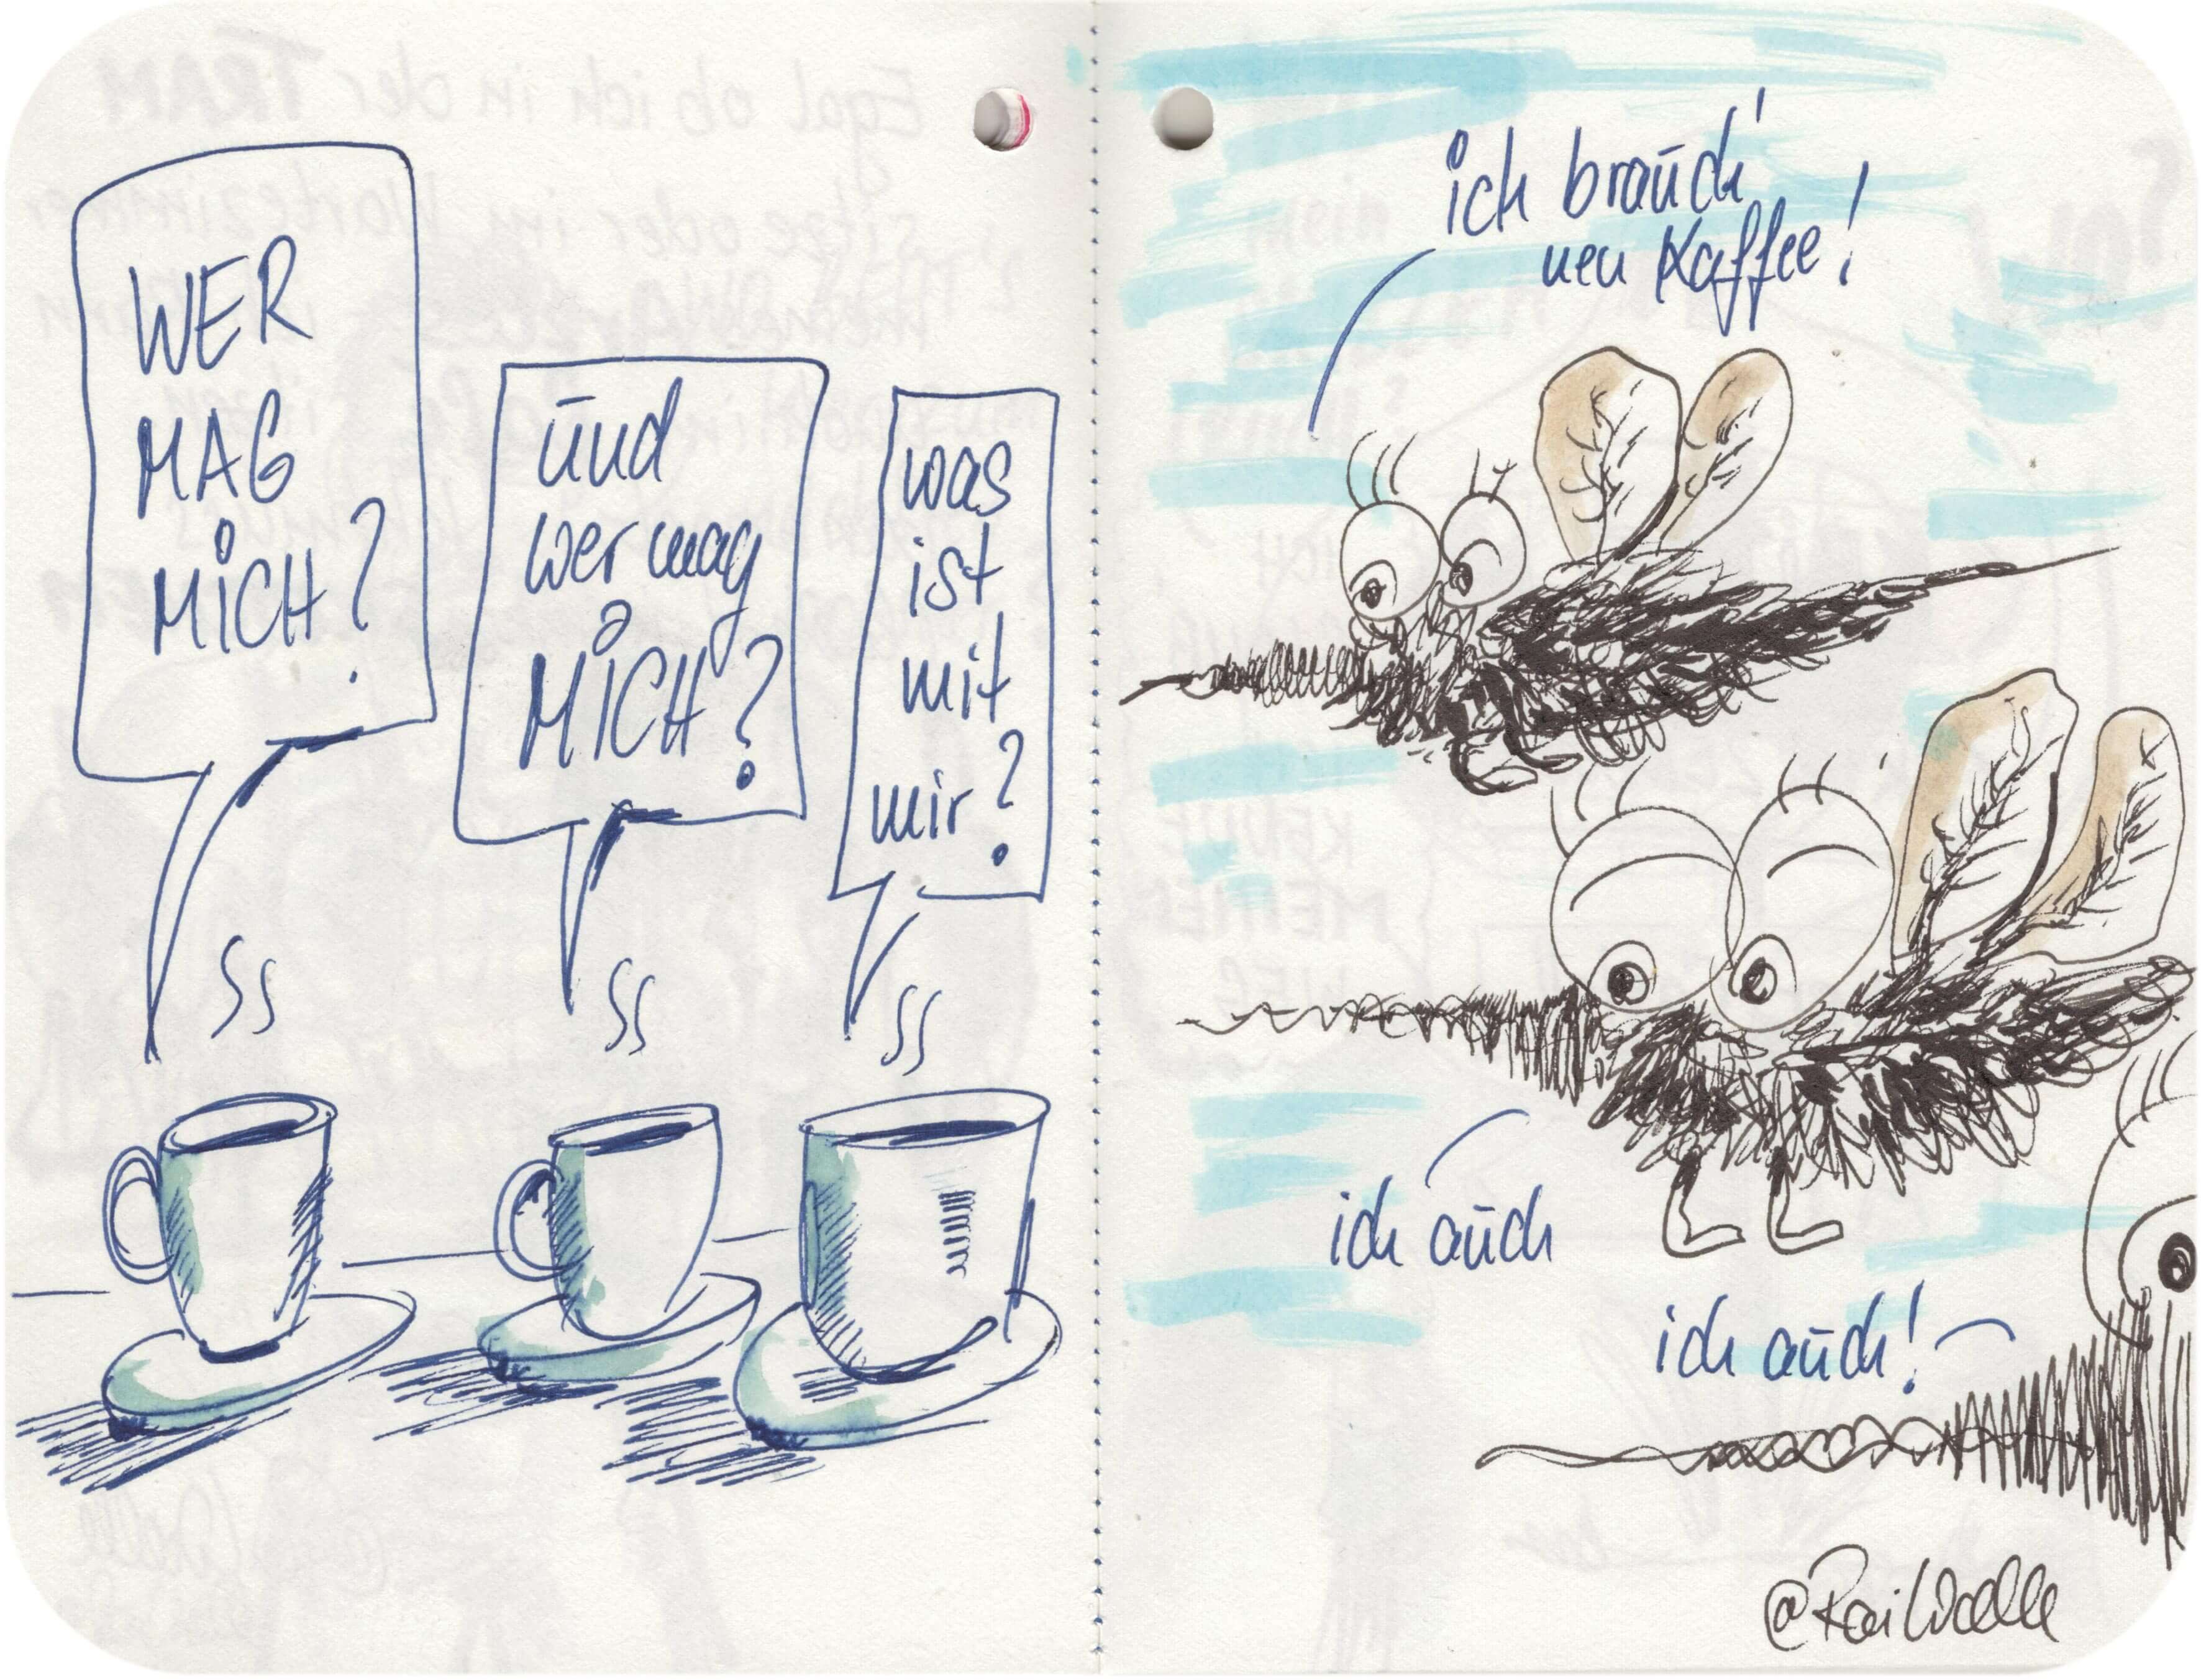 WER
MAG
MICH?
und
wer mag
MICH?
was
ist
mit
mir?
ich brauch'
nen Kaffee!
ich auch
ich auch!
@RaiWolle